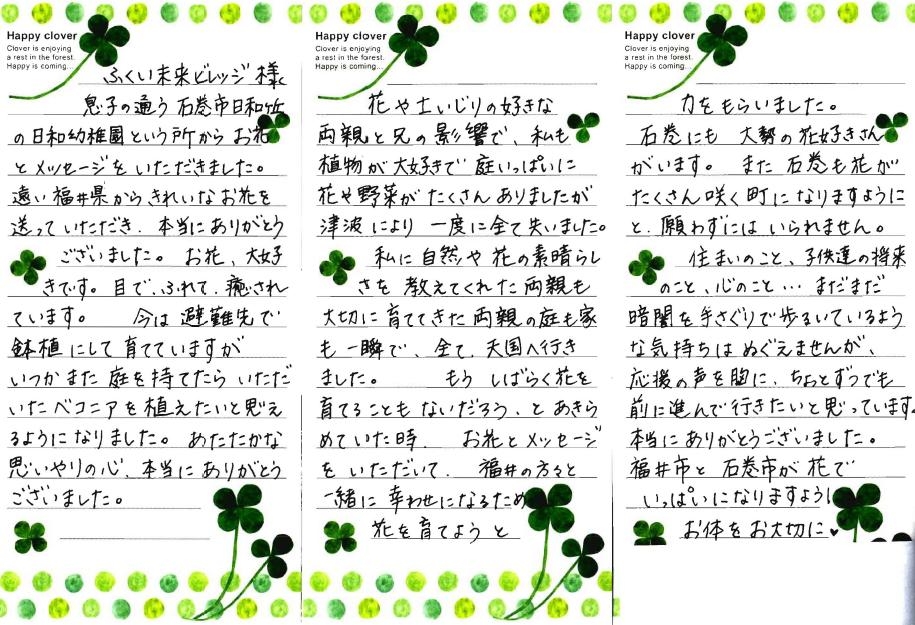 Happy clover
Clover is enjoying
a rest in the forest.
Happy is coming...
ふくい未来ビレッジ 様
息子の通う 石巻市日和が丘
の日和幼稚園という所から お花
とメッセージを いただきました。
遠い福井県から きれいなお花を
送って いただき、本当に ありがとう
ございました。 お花、大好
きです。目で、ふれて、癒され
ています。 今は 避難先で
鉢植にして 育てていますが
いつか また 庭を持てたら いただ
いた ベコニアを 植えたいと思え
るように なりました。 あたたかな
思いやりの心、本当に ありがとう
ございました。
Happy clover
Clover is enjoying
a rest in the forest.
Happy is coming...
花や土いじりの好きな
両親と兄の影響で、私も
植物が大好きで 庭いっぱいに
花や野菜が たくさん ありましたが
津波により 一度に全て失いました。
私に 自然や 花の素晴らし
さを 教えてくれた 両親も
大切に 育ててきた 両親の庭も家
も 一瞬で、全て、天国へ行き
ました。 もう しばらく花を
育てることも ないだろう、と あきら
めていた時、 お花と メッセージ
を いただいて、 福井の方々と
一緒に 幸わせになるため
花を育てよう と
Happy clover
Clover is enjoying
a rest in the forest.
Happy is coming...
力を もらいました。
石巻にも 大勢の花好きさん
がいます。 また 石巻も花が
たくさん咲く町に なりますように
と、願わずには いられません。
住まいのこと、子供達の将来
のこと、心のこと… まだまだ
暗闇を手さぐりで歩るいているよう
な気持ちは ぬぐえませんが、
応援の声を胸に、ちょっとずつでも
前に進んで行きたいと思っています。
本当に ありがとうございました。
福井市と 石巻市が 花で
いっぱいになりますように
お体を お大切に♥